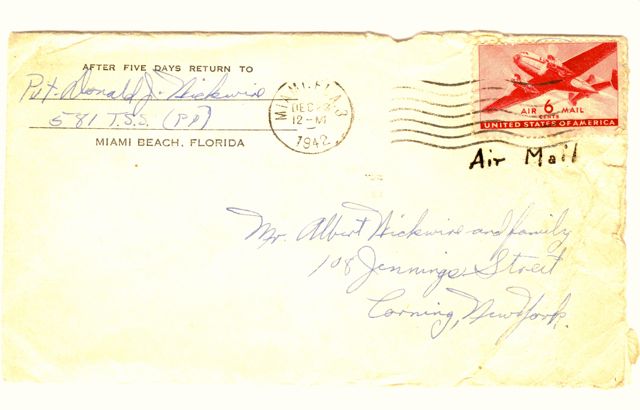 AFTER FIVE DAYS RETURN TO
Pvt. Donald J. Wickwire
581 T.S.S. (PP)
MIAMI BEACH, FLORIDA
MIAMI, FLA. 3
DEC
12-M
1942
AIR 6 MAIL
CENTS
UNITED STATES OF AMERICA
Air Mail
Mr. Albert Wickwire and family
108 Jennings Street
Corning, New York.